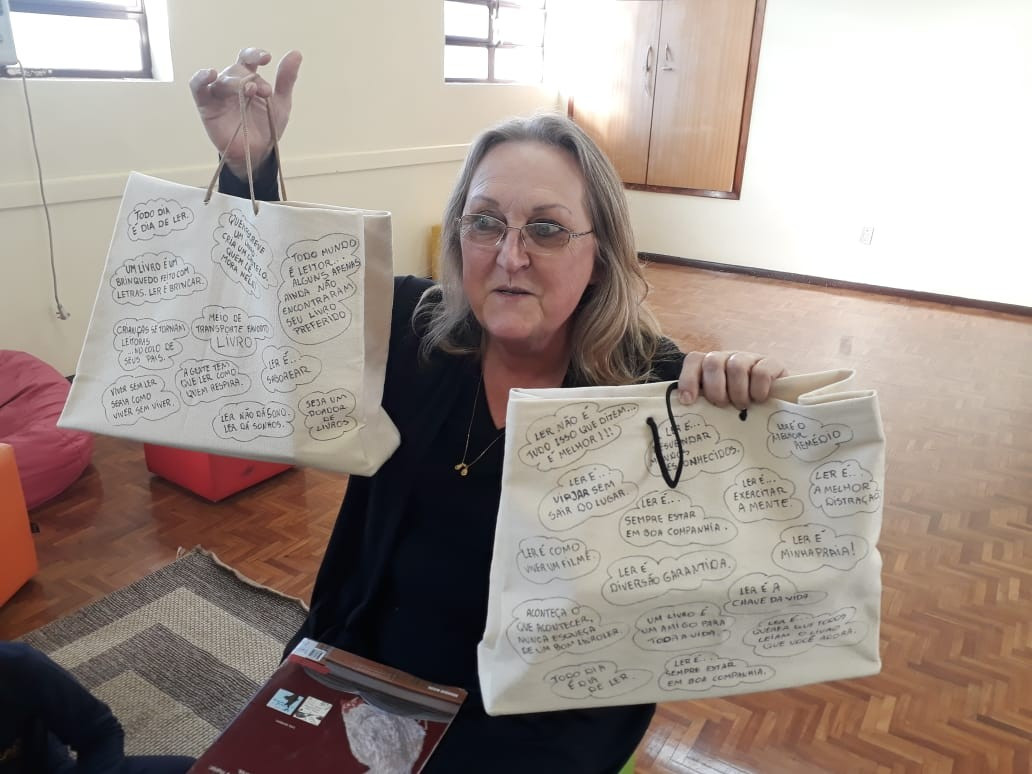 TODO DIA
É DIA DE LER.
QUEM ESCREVE
UM LIVRO
CRIA UM CASTELO.
QUEM LÊ
MORA NELE!
TODO MUNDO
É LEITOR...
ALGUNS APENAS
AINDA NÃO
ENCONTRARAM
SEU LIVRO
PREFERIDO
UM LIVRO É UM
BRINQUEDO FEITO COM
LETRAS. LER É BRINCAR.
MEIO DE
TRANSPORTE FAVORITO
LIVRO
CRIANÇAS SE TORNAM
LEITORAS
...NO COLO DE
SEUS PAIS.
A GENTE TEM
QUE LER COMO
QUEM RESPIRA.
LER É...
SABOREAR
VIVER SEM LER
SERIA COMO
VIVER SEM VIVER.
LER NÃO DÁ SONO.
LER DÁ SONHOS.
SEJA UM
DOADOR
DE
LIVROS
LER NÃO É
TUDO ISSO QUE DIZEM...
É MELHOR!!!
LER É...
DESVENDAR
MUNDOS
DESCONHECIDOS.
LER É O
MELHOR
REMÉDIO
LER É...
VIAJAR SEM
SAIR DO LUGAR.
LER É...
SEMPRE ESTAR
EM BOA COMPANHIA.
LER É...
EXERCITAR
A MENTE.
LER É...
A MELHOR
DISTRAÇÃO
LER É COMO
VIVER UM FILME.
LER É...
DIVERSÃO GARANTIDA.
LER É
MINHA PRAIA!
LER É A
CHAVE DA VIDA
ACONTEÇA O
QUE ACONTECER,
NUNCA ESQUEÇA
DE UM BOM LIVRO LER.
UM LIVRO É
UM AMIGO PARA
TODA A VIDA.
LER É...
QUERER QUE TODOS
LEIAM O LIVRO
QUE VOCÊ ADORA.
TODO DIA
É DIA
DE LER.
LER É...
SEMPRE ESTAR
EM BOA COMPANHIA.